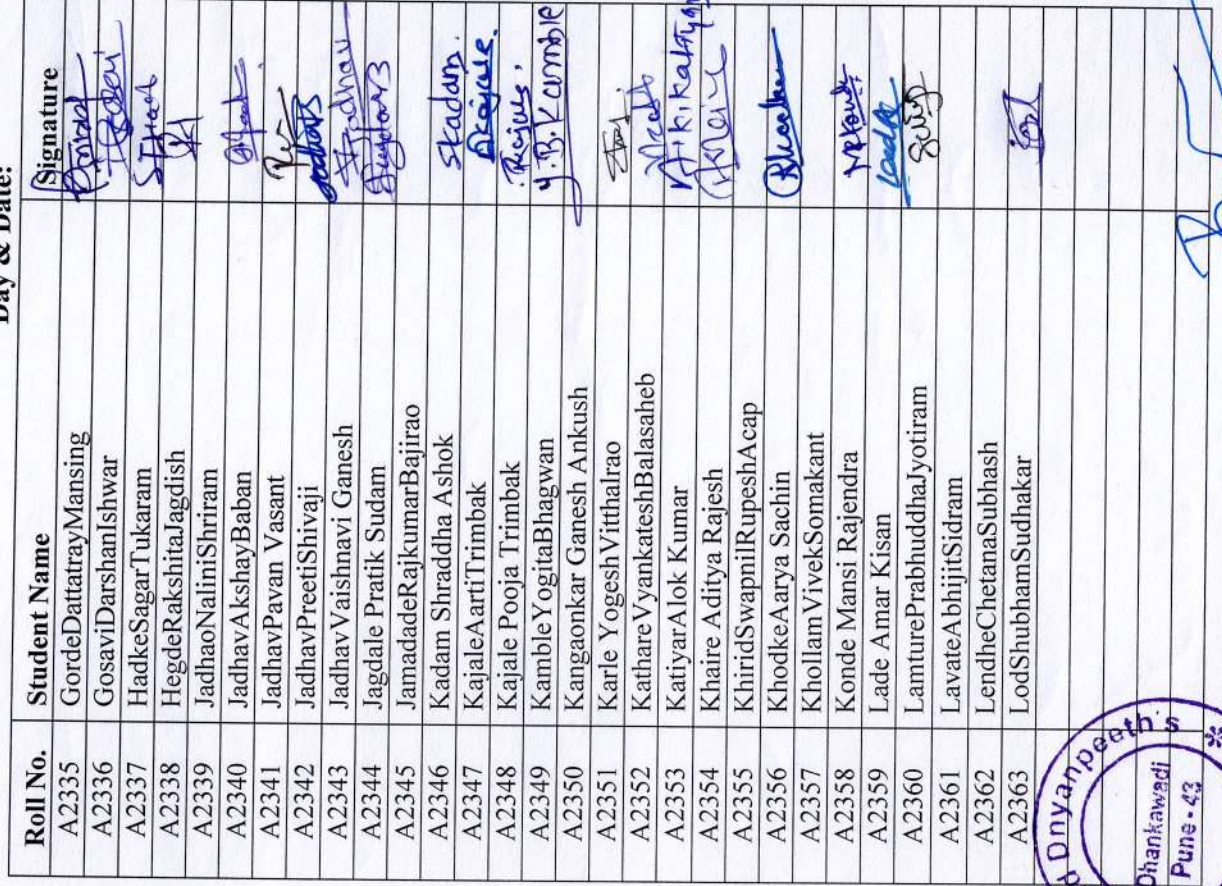 Day & Date:
Roll No. Student Name Signature
A2335 GordeDattatrayMansing
A2336 GosaviDarshanIshwar
A2337 HadkeSagarTukaram
A2338 HegdeRakshitaJagdish
A2339 JadhaoNaliniShriram
A2340 JadhavAkshayBaban
A2341 JadhavPavan Vasant
A2342 JadhavPreetiShivaji
A2343 JadhavVaishnavi Ganesh
A2344 Jagdale Pratik Sudam
A2345 JamadadeRajkumarBajirao
A2346 Kadam Shraddha Ashok Skadam
A2347 KajaleAartiTrimbak
A2348 Kajale Pooja Trimbak
A2349 KambleYogitaBhagwan Y.B.Kamble
A2350 Kangaonkar Ganesh Ankush
A2351 Karle YogeshVitthalrao
A2352 KathareVyankateshBalasaheb
A2353 KatiyarAlok Kumar
A2354 Khaire Aditya Rajesh
A2355 KhiridSwapnilRupeshAcap
A2356 KhodkeAarya Sachin
A2357 KhollamVivekSomakant
A2358 Konde Mansi Rajendra
A2359 Lade Amar Kisan
A2360 LamturePrabhuddhaJyotiram
A2361 LavateAbhijitSidram
A2362 LendheChetanaSubhash
A2363 LodShubhamSudhakar
Dnyanpeeth's
Dhankawadi
Pune-43